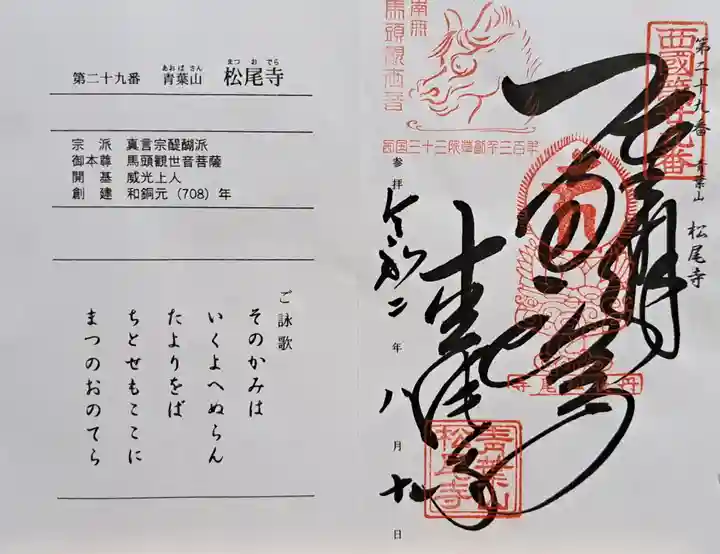 第二十九番 青葉山 松尾寺
あおばさん まつおでら
宗派 真言宗醍醐派
御本尊 馬頭観世音菩薩
開基 威光上人
創建 和銅元（708）年
ご詠歌
そのかみは
いくよへぬらん
たよりをば
ちとせもここに
まつのおのてら
第二十九番 青葉山 松尾寺
西國第廿九番
南無
馬頭観世音
西国三十三所草創千三百年
参拝
令和二年八月十日
青葉山
松尾寺